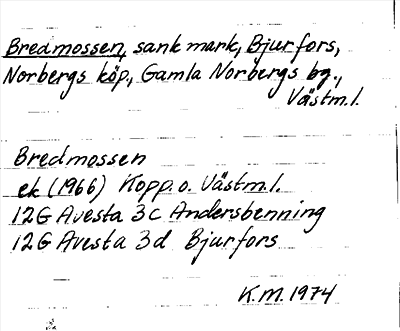 Bredmossen, sank mark, Bjurfors,
Norbergs köp., Gamla Norbergs bg.,
Västm.l.
Bredmossen
ek (1966) Kopp. o. Västm.l.
12G Avesta 3c Andersbenning
12G Avesta 3d Bjurfors
K.M. 1974